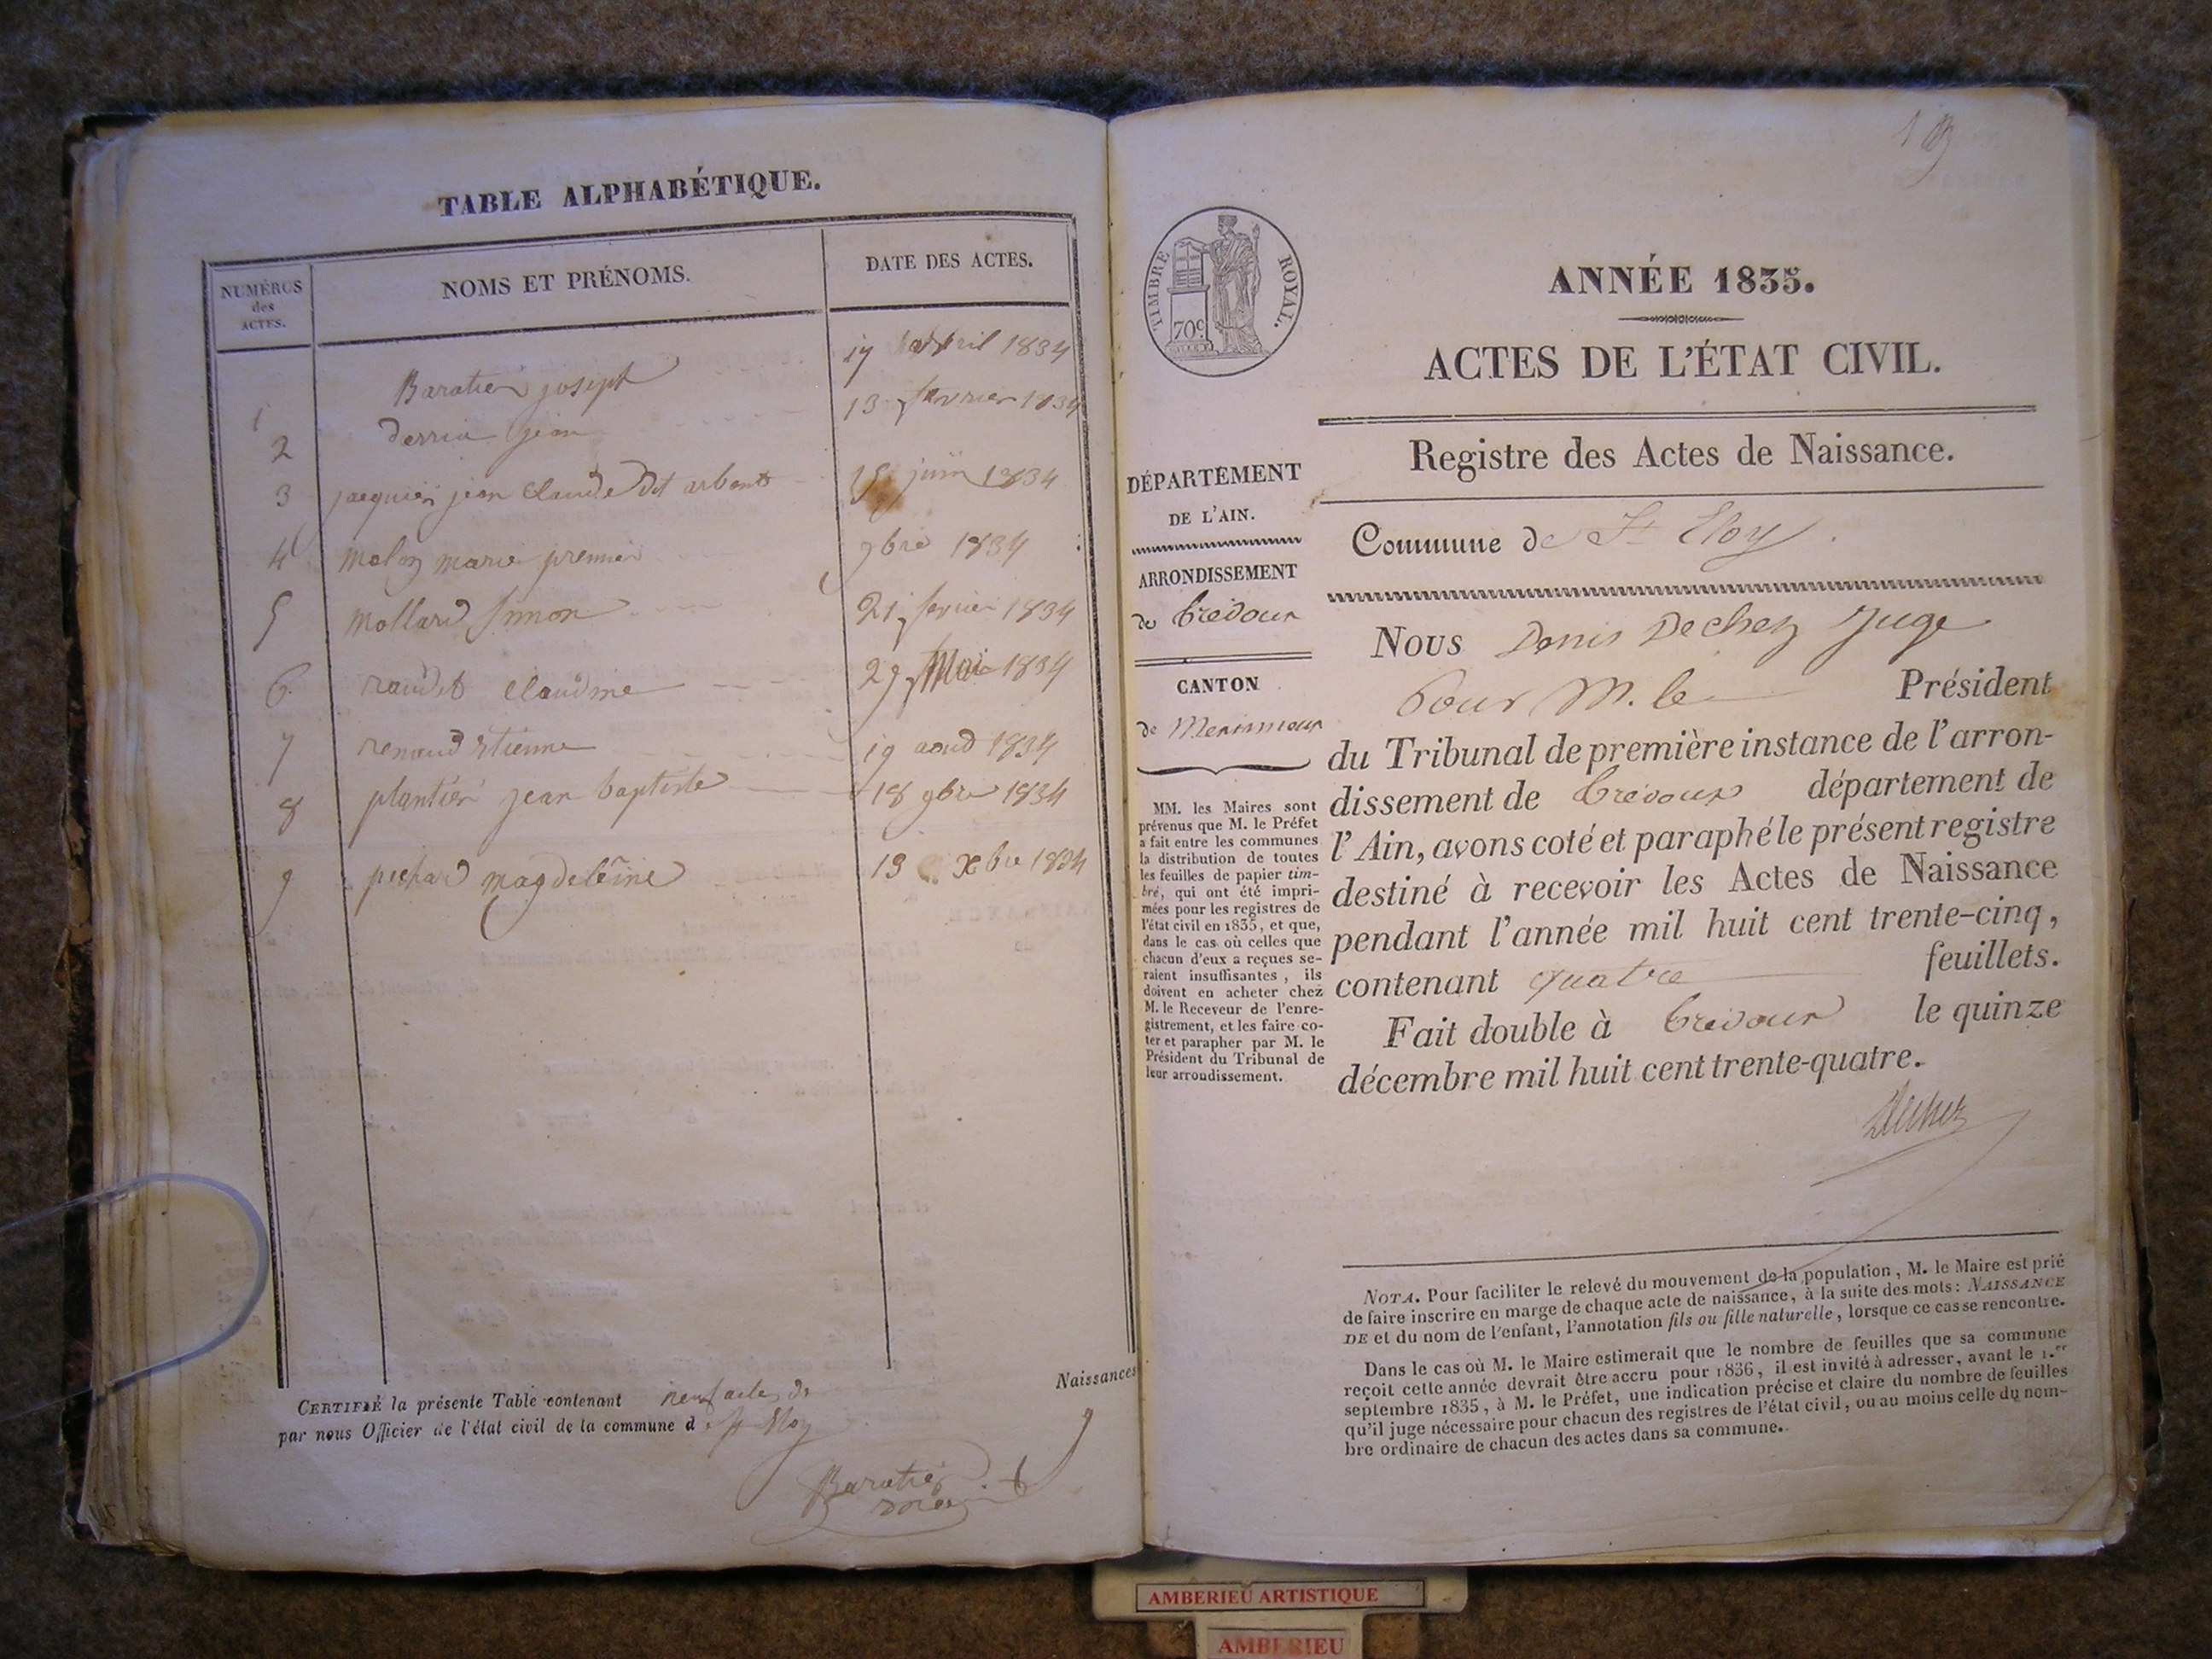 TABLE ALPHABÉTIQUE.
NUMÉROS des ACTES. NOMS ET PRÉNOMS. DATE DES ACTES.
1 Baratier joseph 17 avril 1834
2 derria jean 13 fevrier 1834
3 jacquier jean claude dit arbent 15 juin 1834
4 marie premier 9bre 1834
5 mollard Simon 21 fevrier 1834
6 raudet claudine 29 Mai 1834
7 renaud etienne 19 aoud 1834
8 plantier jean baptiste 18 9bre 1834
9 pechard magdeleine 13 Xbre 1834
CERTIFIÉ la présente Table contenant neuf actes de
par nous Officier de l'état civil de la commune d St Eloy
Naissances
9
Baratier
TIMBRE ROYAL.
70c
ANNÉE 1835.
ACTES DE L'ÉTAT CIVIL.
Registre des Actes de Naissance.
DÉPARTEMENT
DE L'AIN.
ARRONDISSEMENT
de Trévoux
CANTON
de Meximieux
MM. les Maires sont
prévenus que M. le Préfet
a fait entre les communes
la distribution de toutes
les feuilles de papier tim-
bré, qui ont été impri-
mées pour les registres de
l'état civil en 1835, et que,
dans le cas où celles que
chacun d'eux a reçues se-
raient insuffisantes, ils
doivent en acheter chez
M. le Receveur de l'enre-
gistrement, et les faire co-
ter et parapher par M. le
Président du Tribunal de
leur arrondissement.
Commune de St Eloy.
Nous Denis Dechez Juge
Pour M. le Président
du Tribunal de première instance de l'arron-
dissement de Trévoux département de
l'Ain, avons coté et paraphé le présent registre
destiné à recevoir les Actes de Naissance
pendant l'année mil huit cent trente-cinq,
contenant quatre feuillets.
Fait double à Trévoux le quinze
décembre mil huit cent trente-quatre.
Dechez
NOTA. Pour faciliter le relevé du mouvement de la population, M. le Maire est prié
de faire inscrire en marge de chaque acte de naissance, à la suite des mots: NAISSANCE
DE et du nom de l'enfant, l'annotation fils ou fille naturelle, lorsque ce cas se rencontre.
Dans le cas où M. le Maire estimerait que le nombre de feuilles que sa commune
reçoit cette année devrait être accru pour 1836, il est invité à adresser, avant le 1.er
septembre 1835, à M. le Préfet, une indication précise et claire du nombre de feuilles
qu'il juge nécessaire pour chacun des registres de l'état civil, ou au moins celle du nom-
bre ordinaire de chacun des actes dans sa commune.
AMBERIEU ARTISTIQUE
AMBERIEU